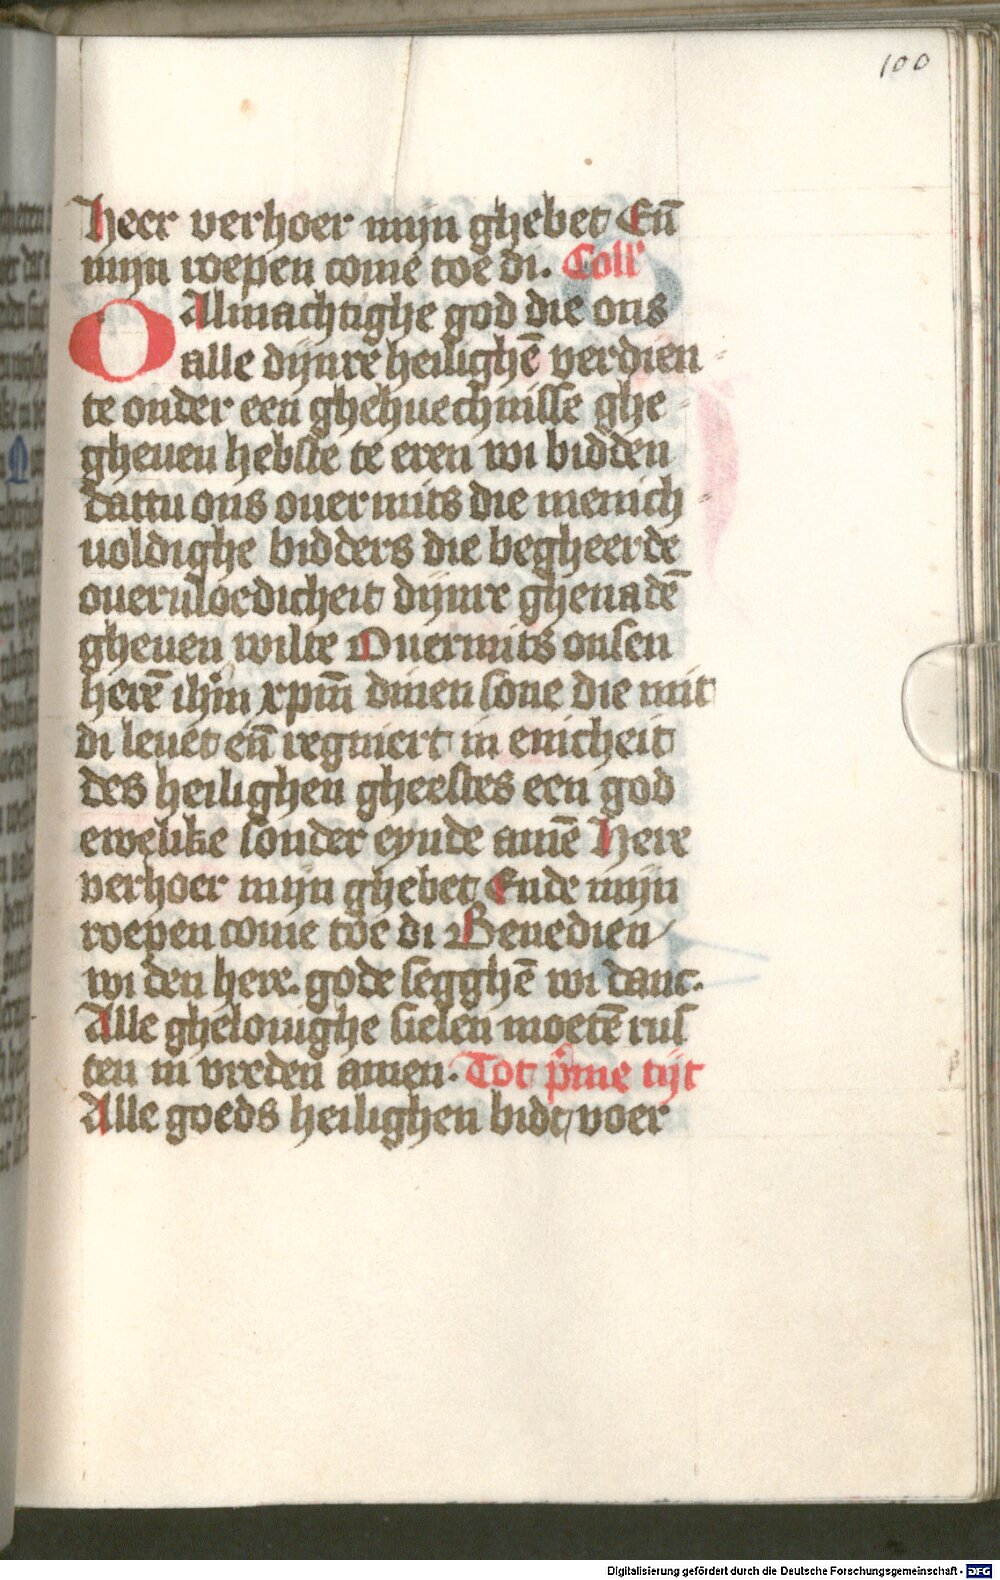 100
Heer verhoer mijn ghebet Eñ
mijn roepen come toe di. Coll'
O Almachtighe god die ons
alle dijnre heilighē verdien
te onder een ghehuechnisse ghe
gheuen hebste te eren wi bidden
dattu ons ouermits die menich
uoldighe bidders die begheerde
oueruloedicheit dijnre ghenadē
gheuen wilte Ouermits onsen
herē ihm̄ xpm̄ dinen sone die mit
di leuet eñ regniert in enicheit
des heilighen gheestes een god
ewelike sonder eynde amē Here
verhoer mijn ghebet Ende mijn
roepen come toe di Benedien
wi den here. gode segghē wi danc.
Alle ghelouighe sielen moetē rus
ten in vreden amen. Tot p̄me tijt
Alle goeds heilighen bidt voer
Digitalisierung gefördert durch die Deutsche Forschungsgemeinschaft - DFG